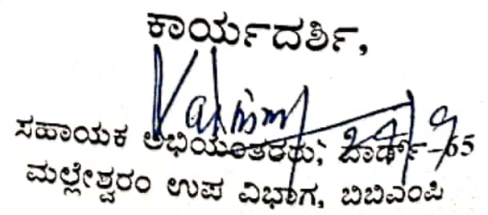 ಕಾರ್ಯದರ್ಶಿ,
ಸಹಾಯಕ ಅಭಿಯಂತರರು, ವಾರ್ಡ್-65
ಮಲ್ಲೇಶ್ವರಂ ಉಪ ವಿಭಾಗ, ಬಿಬಿಎಂಪಿ